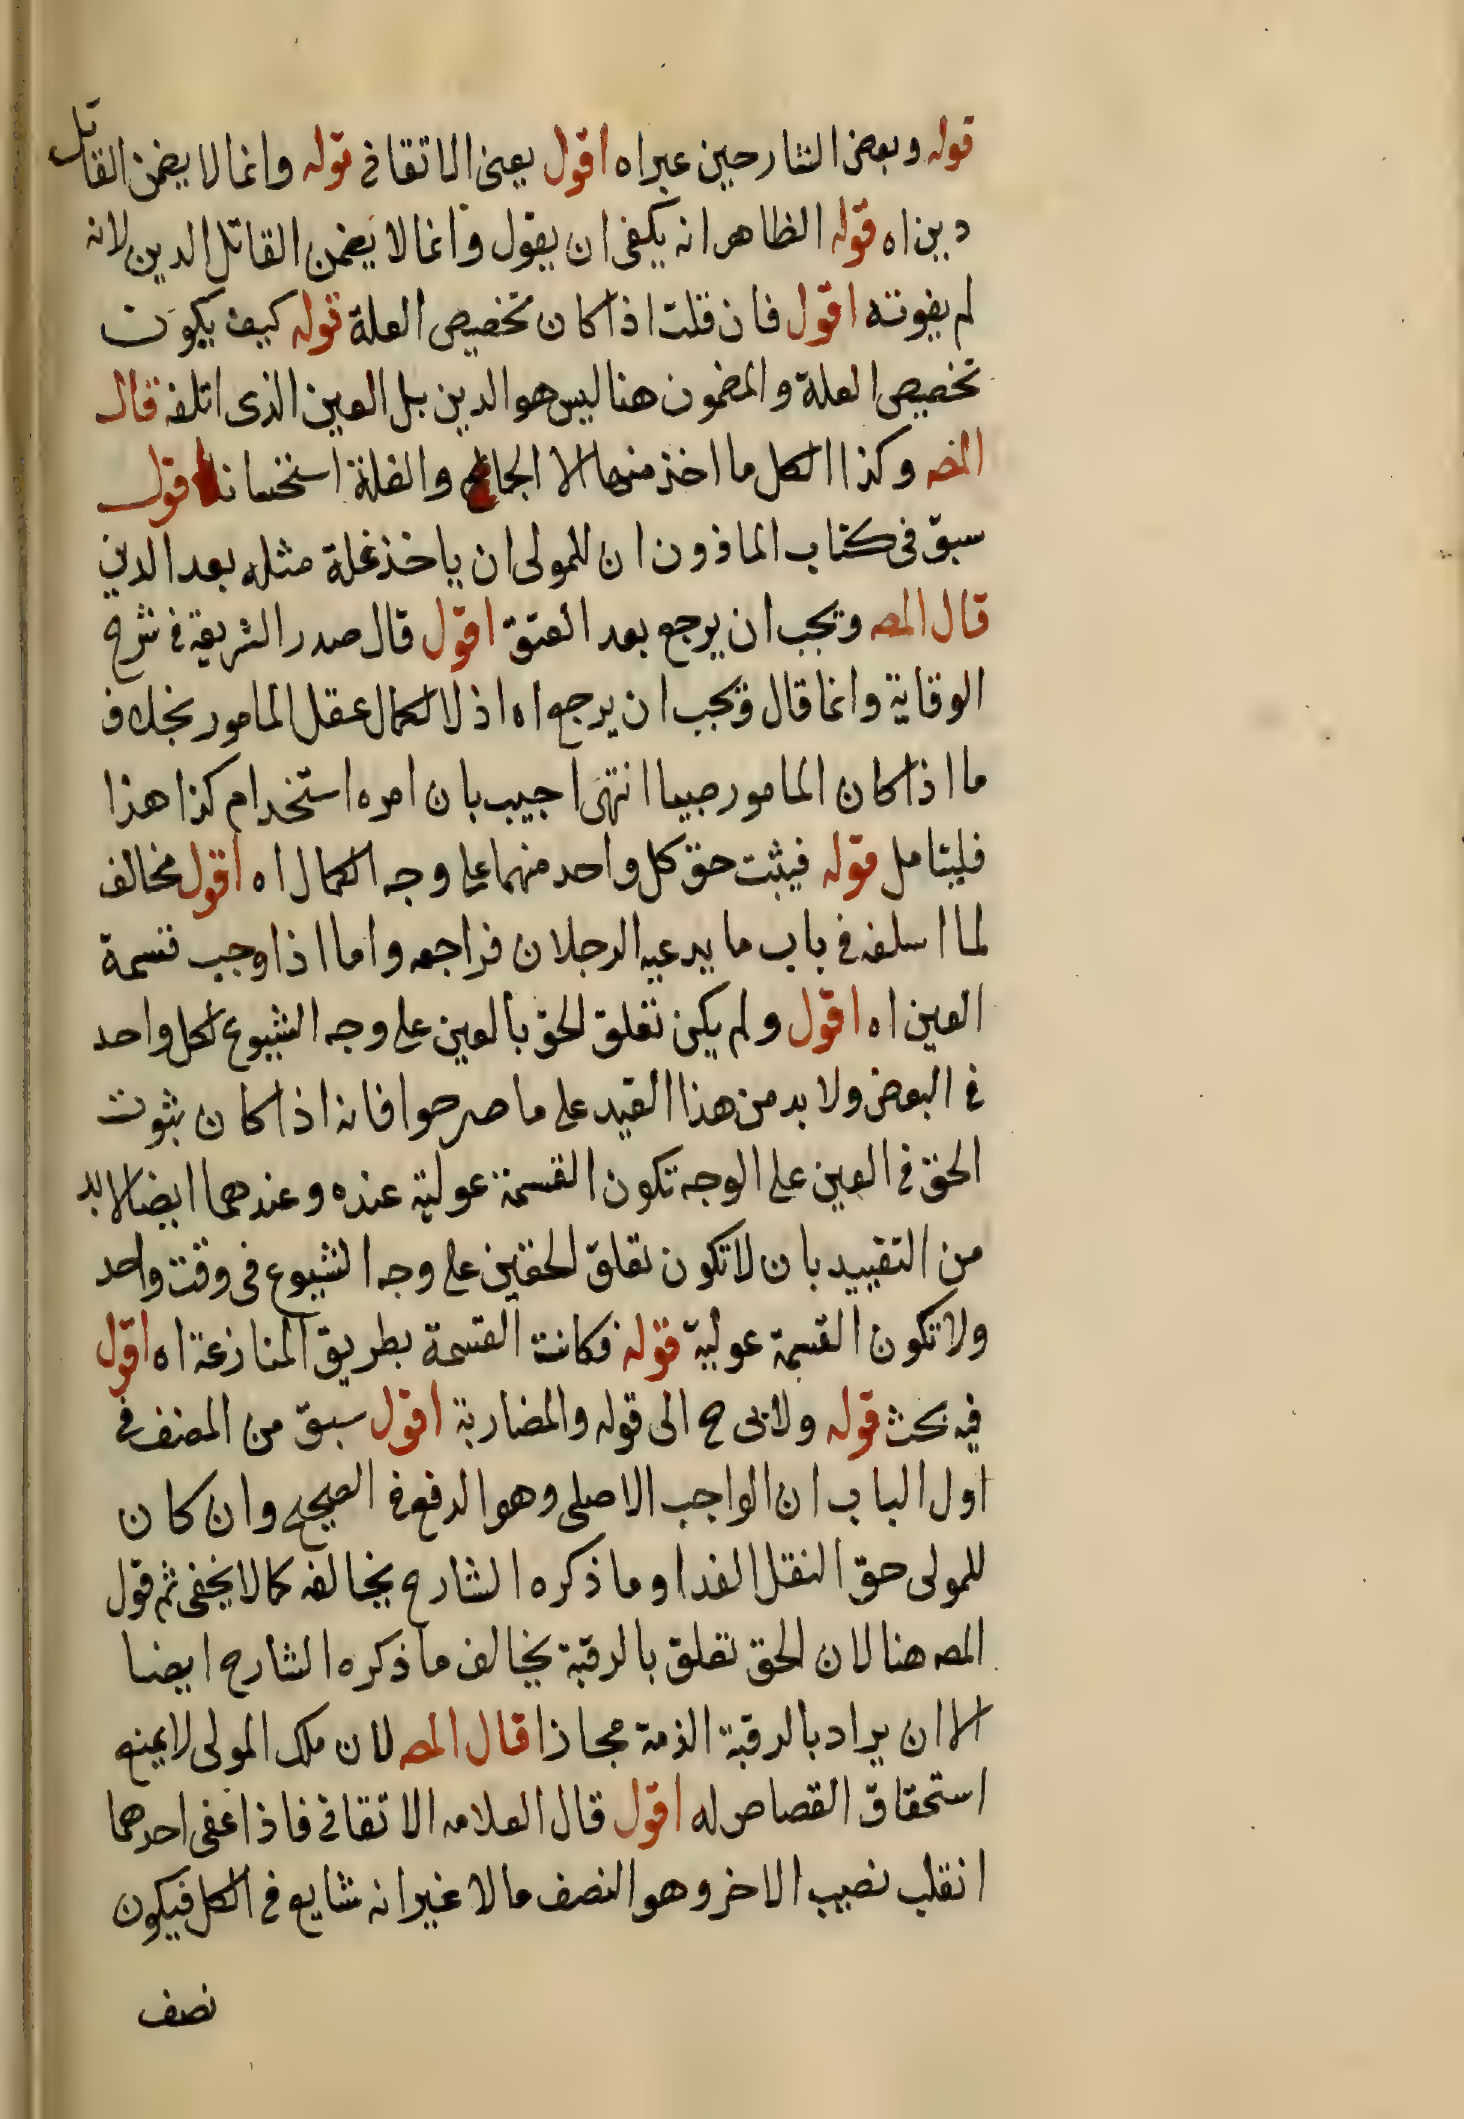 قوله وبعض الشارحين عبر اه اقول يعنى الاتقانى قوله وانما لا يضمن القاتل
دين اه قوله الظاهر انه يكفى ان يقول وانما لا يضمن القاتل الدين لانه
لم يفوته اقول فان قلت اذا كان تخصيص العلة قوله كيف يكون
تخصيص العلة والمضمون هنا ليس هو الدين بل العين الذى اتلفه قال
المصه وكذا الكل ما اخذ منها الا والغلة استحسانا اقول
سبق فى كتاب الماذون ان للمولى ان ياخذ غلة مثله بعد الدين
قال المصه ويجب ان يرجع بعد العتق اقول قال صدر الشريعة فى شرح
الوقاية وانما قال ويجب ان يرجع اه اذ لا لكمال عقل المامور بخلاف
ما اذا كان المامور صبيا انتهى اجيب بان امره استخدام كذا هذا
فليتامل قوله فيثبت حق كل واحد منهما على وجه الكمال اه اقول مخالف
لما اسلفه فى باب ما يدعيه الرجلان فراجعه واما اذا وجب قسمة
العين اه اقول ولم يكن تعلق الحق بالعين على وجه الشيوع لكل واحد
فى البعض ولا بد من هذا القيد على ما صرحوا فانه اذا كان بثوت
الحق فى العين على الوجه تكون القسمة عولية عنده وعندهما ايضا لا بد
من التقييد بان لا تكون تعلق الحقين على وجه الشيوع فى وقت واحد
ولا تكون القسمة عولية قوله فكانت القسمة بطريق المنازعة اه اقول
فيه بحث قوله ولابى ح الى قوله والمضاربة اقول سبق من المصنف فى
اول الباب ان الواجب الاصلى وهو الدفع فى الصحيح وان كان
للمولى حق النقل الفدا وما ذكره الشارح يخالفه كما لا يخفى ثم قول
المصه هنا لان الحق تعلق بالرقبة يخالف ما ذكره الشارح ايضا
الا ان يراد بالرقبة الذمة مجازا قال المصه لان ملك المولى لا يمنع
استحقاق القصاص له اقول قال العلامه الاتقانى فاذا عفى احدهما
انقلب نصيب الاخر وهو النصف مالا غير انه شايع فى الكل فيكون
نصف